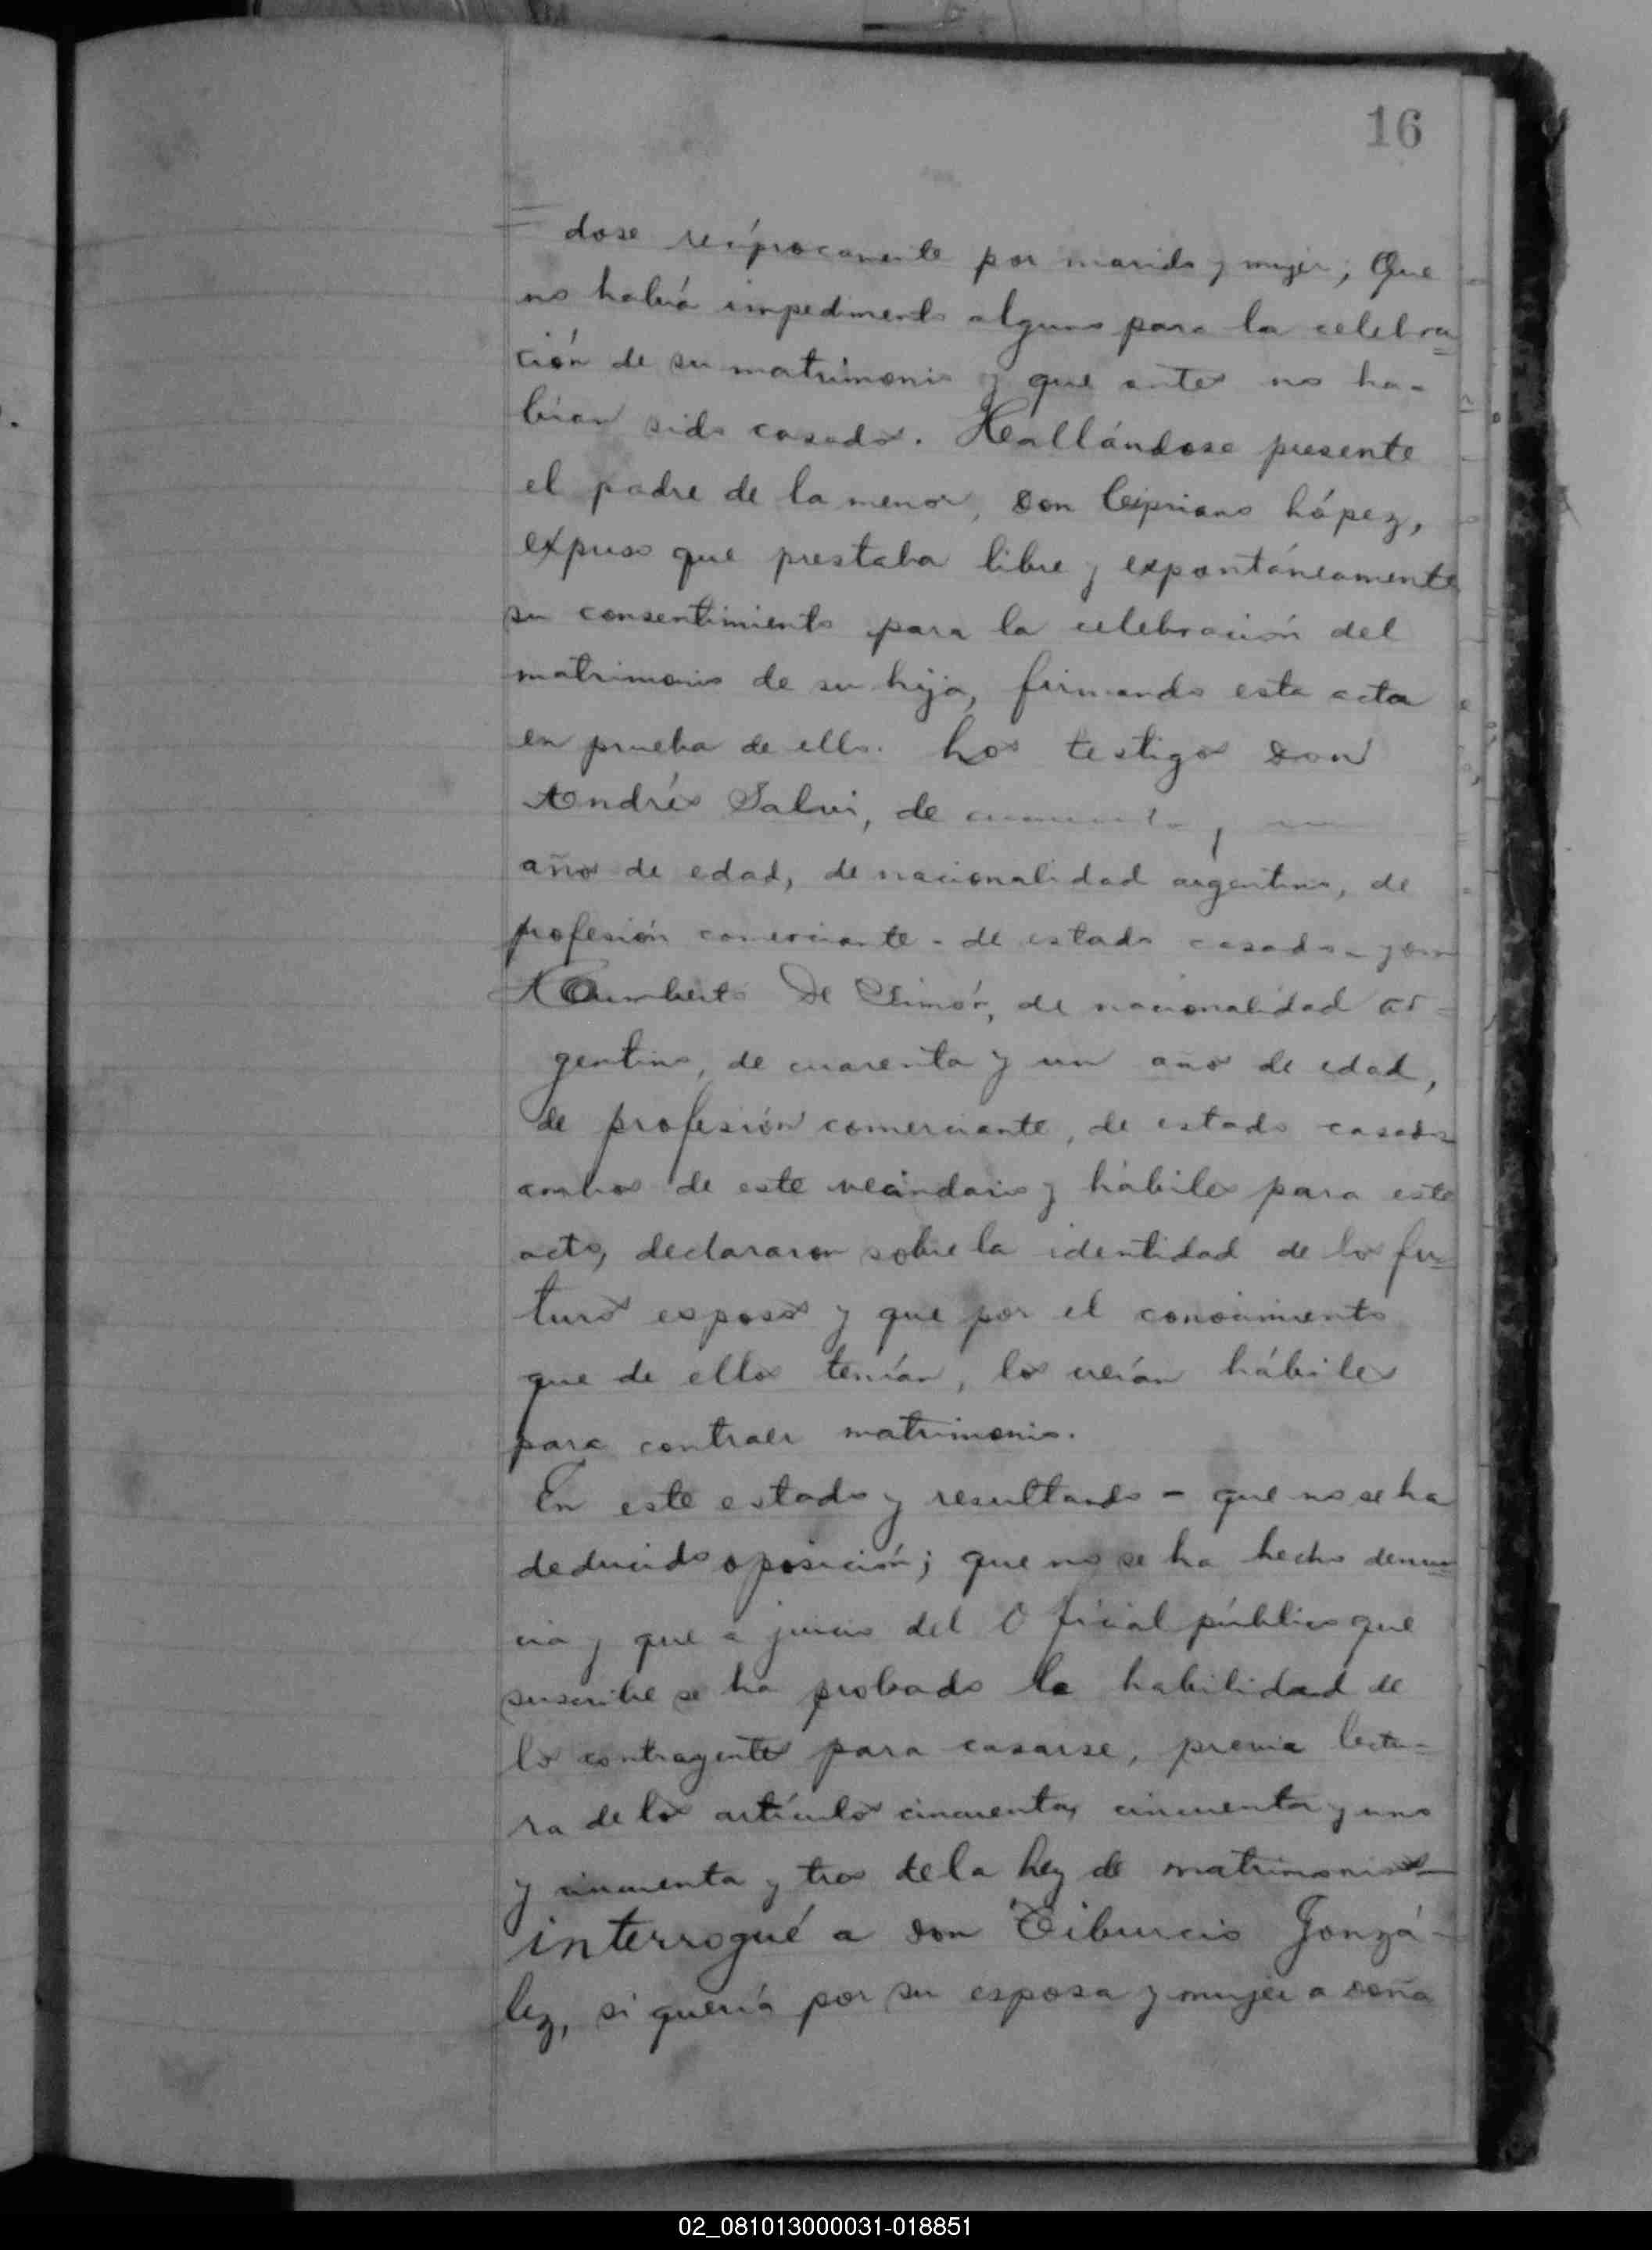 16
dose recíprocamente por marido y mujer; Que
no había impedimento alguno para la celebra=
ción de su matrimonio y que antes no ha-
bían sido casados. Hallándose presente
el padre de la menor, don Cipriano López,
expuso que prestaba libre y expontáneamente
su consentimiento para la celebración del
matrimonio de su hija, firmando esta acta
en prueba de ello. Los testigos don
Andrés Salvi, de
años de edad, de nacionalidad argentino, de
profesión comerciante - de estado casado - y don
Humberto De Simón, de nacionalidad ar=
gentino, de cuarenta y un años de edad,
de profesión comerciante, de estado casado
ambos de este vecindario y hábiles para este
acto, declararon sobre la identidad de los fu=
turos esposos y que por el conocimiento
que de ellos tenían, los creían hábiles
para contraer matrimonio.
En este estado y resultando - que no se ha
deducido oposición; que no se ha hecho denun=
cia y que a juicio del Oficial público que
suscribe se ha probado la habilidad de
los contrayentes para casarse, previa lectu-
ra de los artículos cincuenta, cincuenta y uno
y cincuenta y tres de la Ley de matrimonio
interrogué a don Tiburcio Gonzá-
lez, si quería por su esposa y mujer a doña
02_081013000031-018851